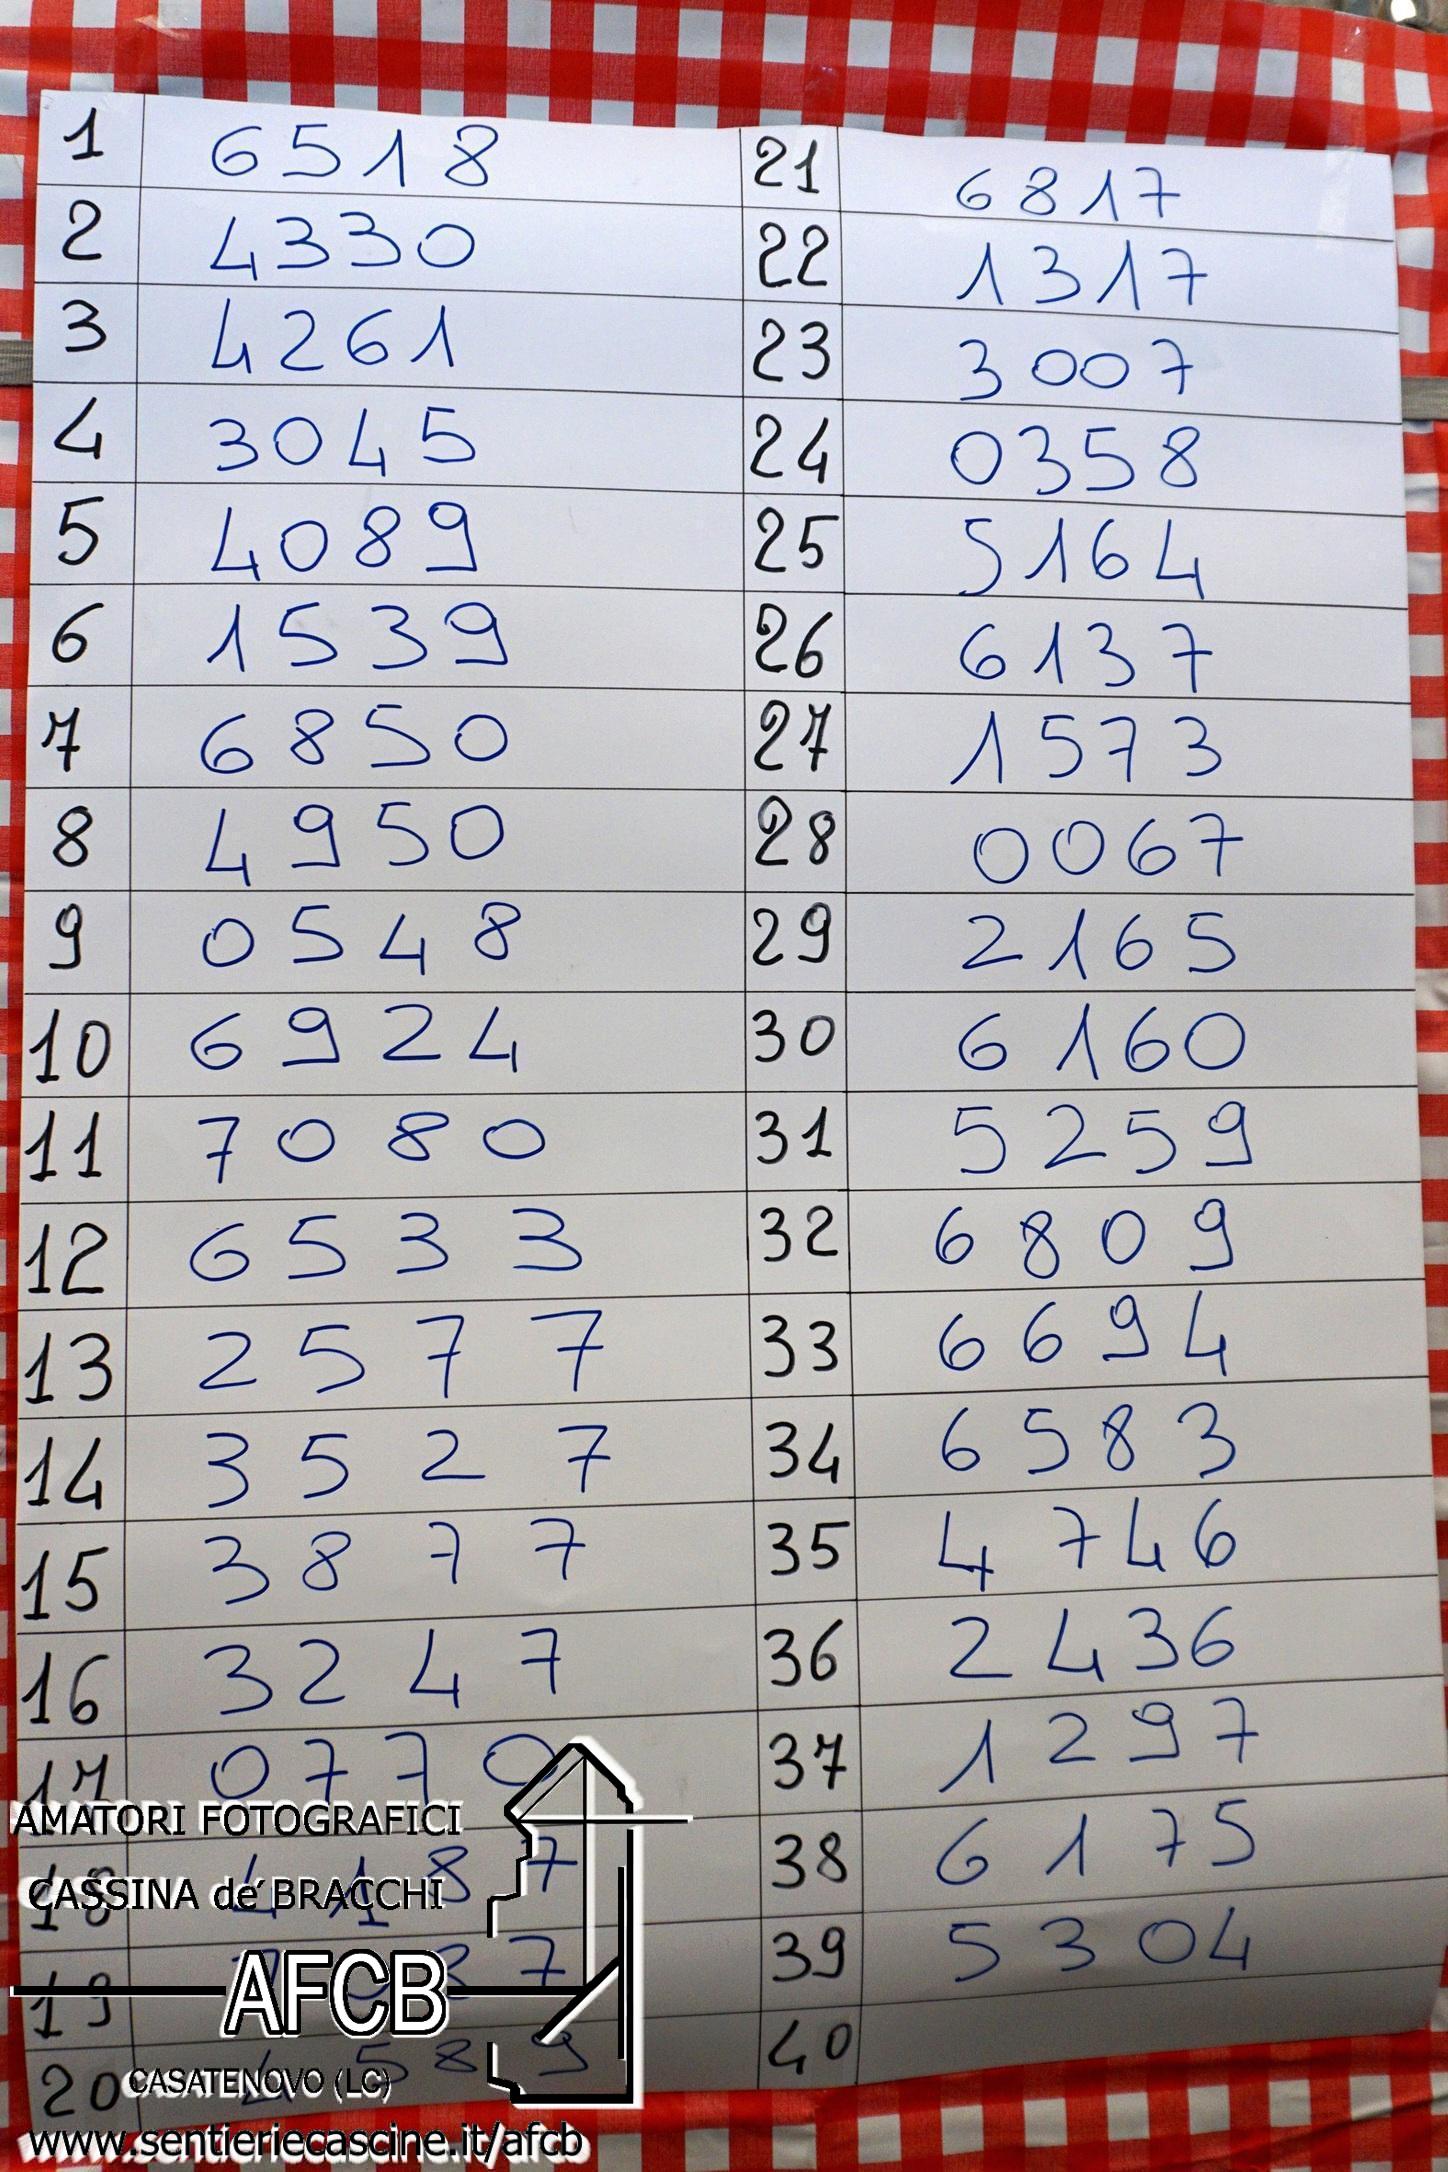 1 6518
2 4330
3 4261
4 3045
5 4089
6 1539
7 6850
8 4950
9 0548
10 6924
11 7080
12 6533
13 2577
14 3527
15 3877
16 3247
17 0770
18 4187
19
20
21 6817
22 1317
23 3007
24 0358
25 5164
26 6137
27 1573
28 0067
29 2165
30 6160
31 5259
32 6809
33 6694
34 6583
35 4746
36 2436
37 1297
38 6175
39 5304
40
AMATORI FOTOGRAFICI
CASSINA de' BRACCHI
AFCB
CASATENOVO (LC)
www.sentieriecascine.it/afcb